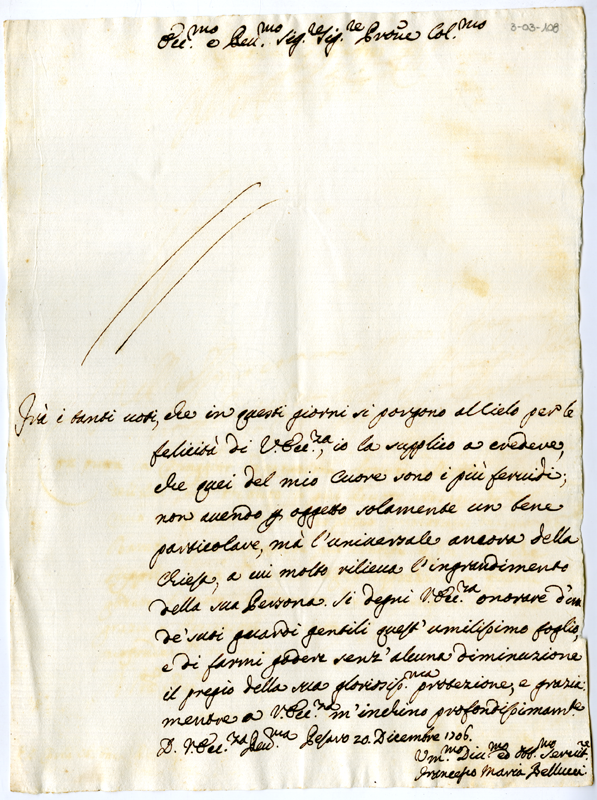 3-03-108
Ecc.mo e Reu.mo Sig.re Sig.re Prone Col.mo
Frà i tanti uoti, che in questi giorni si porgono al Cielo per le
felicità di V. Ecc.za, io la supplico a credere,
che quei del mio Cuore sono i più feruidi;
non auendo p oggetto solamente un bene
particolare, mà l'uniuersale ancora della
Chiesa, a cui molto rilieua l'ingrandimento
della sua Persona. Si degni V. Ecc.za onorare d'un
de' suoi guardi gentili quest' umilissimo foglio,
e di farmi godere senz' alcuna diminuzione
il pregio della sua gloriosiss.ma protezione, e grazia
mentre a V. Ecc.za m'inchino profondissimam.te
D. V. Ecc.za Reu.ma Pesaro 20. Dicembre 1706.
Um.mo Diu.mo ed Obb.mo Seruit.re
Francesco Maria Bellucci